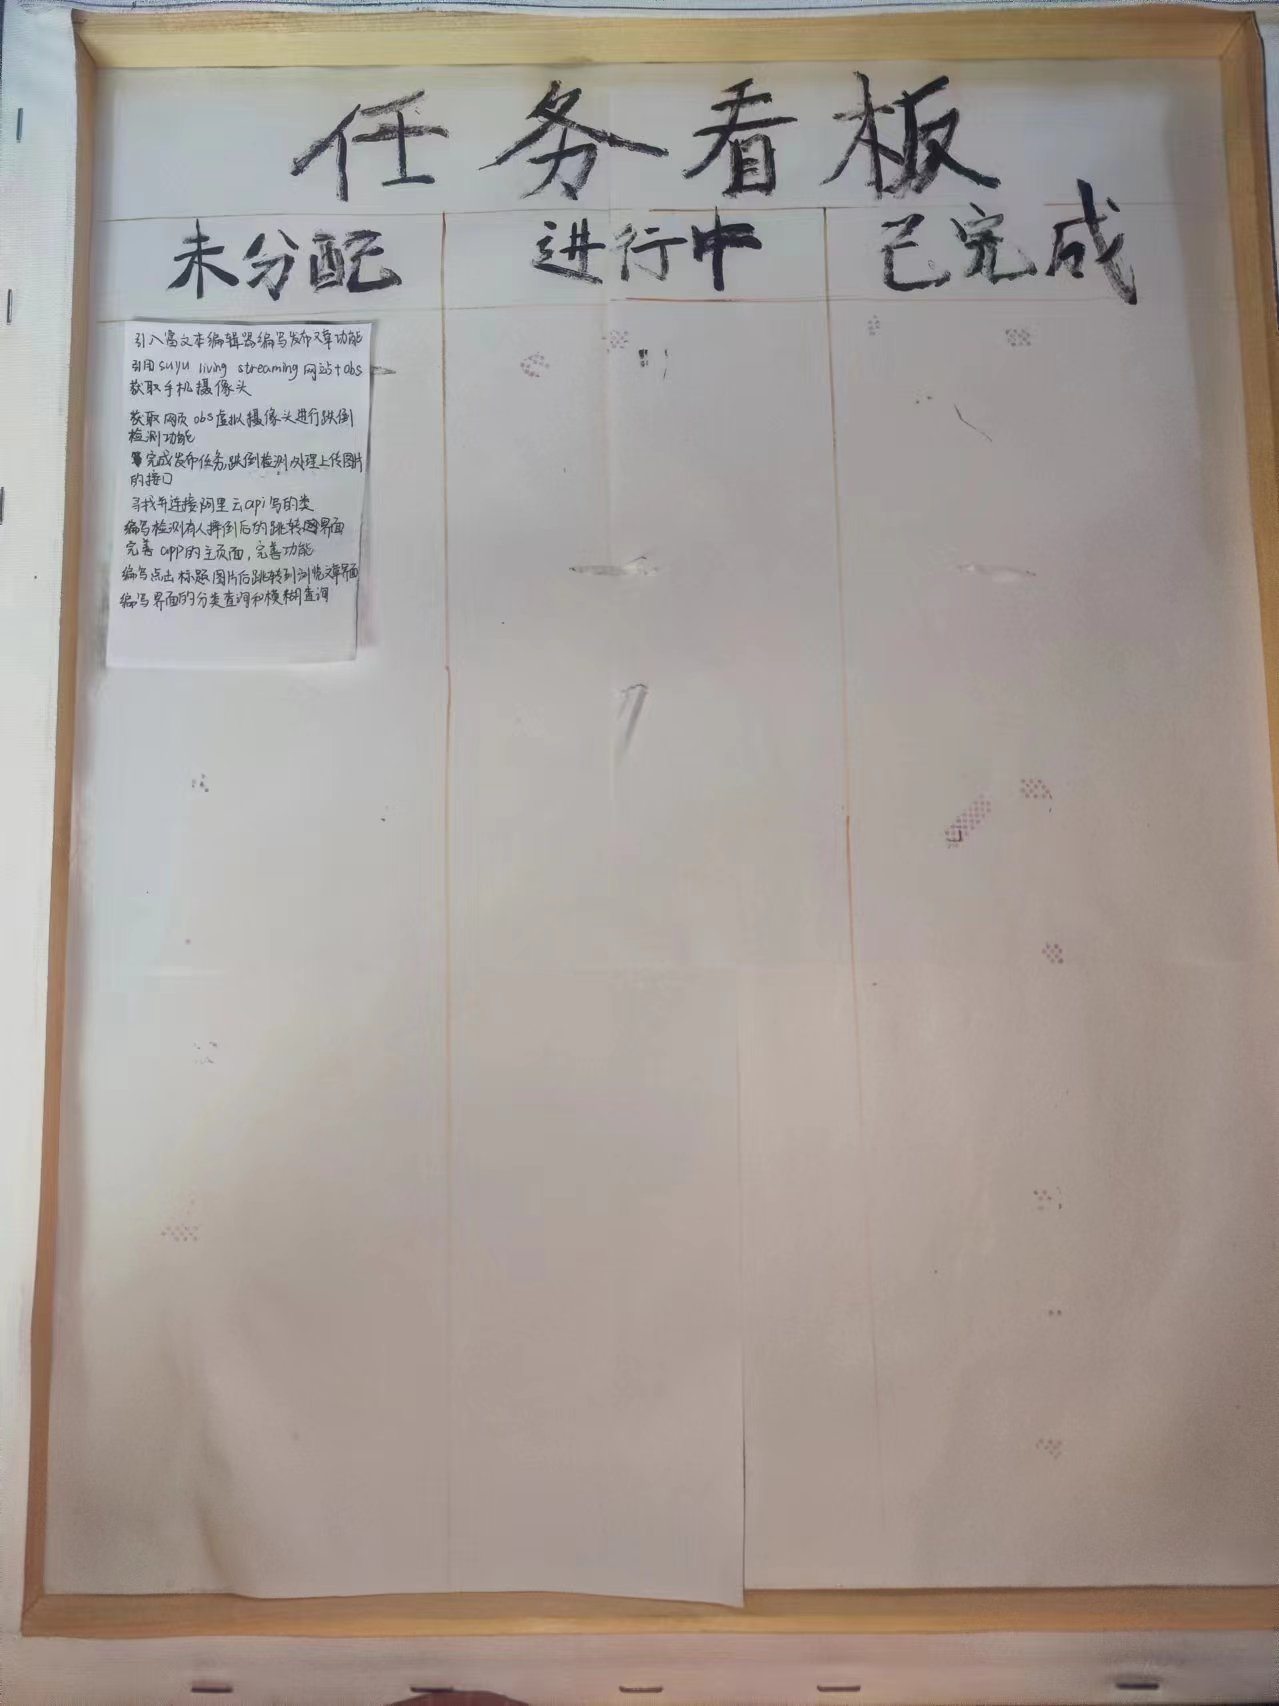 任务看板
未分配
进行中
已完成
引入富文本编辑器编写发布文章功能
引用suyu living streaming网站+obs
获取手机摄像头
获取网页obs虚拟摄像头进行跌倒
检测功能
完成发布任务,跌倒检测,处理上传图片
的接口
寻找并连接阿里云api写的类
编写检测有人摔倒后的跳转界面
完善app的主页面,完善功能
编写点击标题图片后跳转到浏览文章界面
编写界面的分类查询和模糊查询